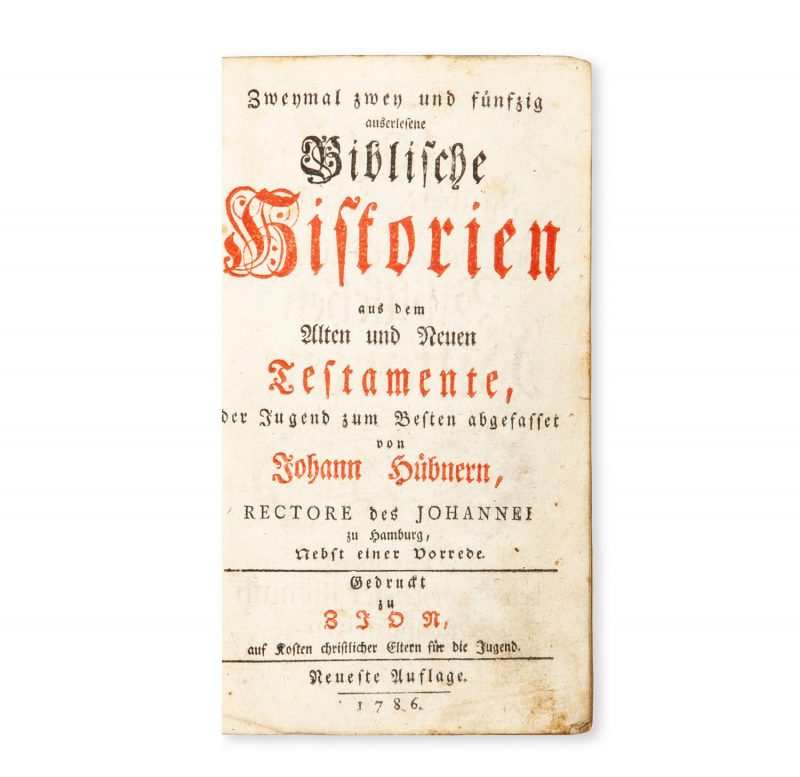 Zweymal zwey und fünfzig
auserlesene
Biblische
Historien
aus dem
Alten und Neuen
Testamente,
der Jugend zum Besten abgefasset
von
Johann Hübnern,
RECTORE des JOHANNEI
zu Hamburg,
Nebst einer Vorrede.
Gedruckt
zu
ZION,
auf Kosten christlicher Eltern für die Jugend.
Neueste Auflage.
1786.